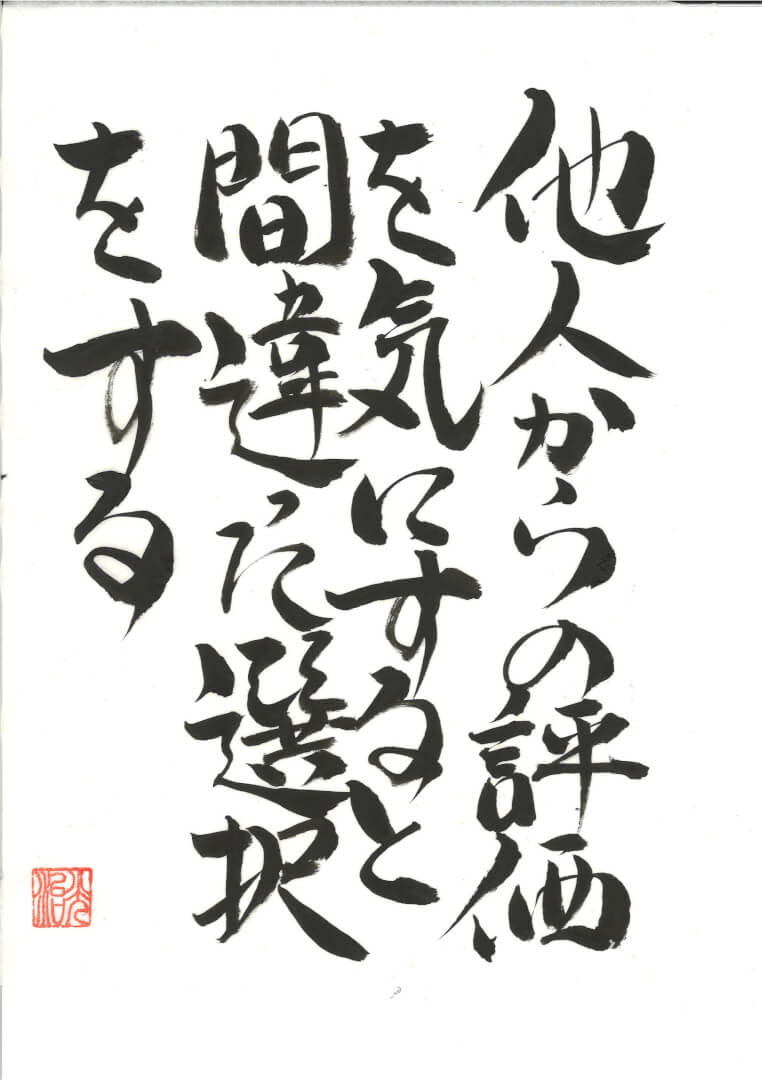 他人からの評価
を気にすると
間違った選択
をする